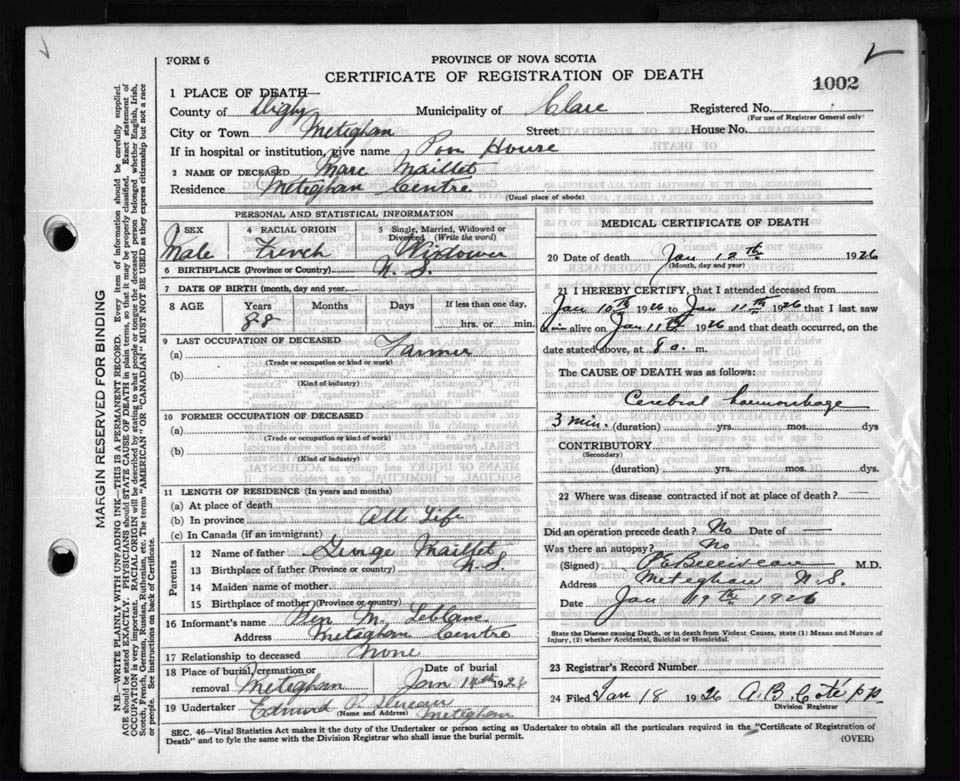 FORM 6
PROVINCE OF NOVA SCOTIA
CERTIFICATE OF REGISTRATION OF DEATH
1002
1 PLACE OF DEATH—
County of Digby Municipality of Clare Registered No.
(For use of Registrar General only)
City or Town Meteghan Street House No.
If in hospital or institution, give name Poor House
2 NAME OF DECEASED Marc Maillet
Residence Meteghan Centre
(Usual place of abode)
PERSONAL AND STATISTICAL INFORMATION
3 SEX 4 RACIAL ORIGIN 5 Single, Married, Widowed or Divorced (Write the word)
Male French Widower
6 BIRTHPLACE (Province or Country) N. S.
7 DATE OF BIRTH (month, day and year)
8 AGE Years Months Days If less than one day,
88 hrs. or min.
9 LAST OCCUPATION OF DECEASED
(a) Farmer
(Trade or occupation or kind of work)
(b)
(Kind of industry)
10 FORMER OCCUPATION OF DECEASED
(a)
(Trade or occupation or kind of work)
(b)
(Kind of industry)
11 LENGTH OF RESIDENCE (In years and months)
(a) At place of death
(b) In province All Life
(c) In Canada (if an immigrant)
Parents
12 Name of father George Maillet
13 Birthplace of father (Province or country) N. S
14 Maiden name of mother
15 Birthplace of mother (Province or country)
16 Informant's name M. Leblanc
Address Meteghan Centre
17 Relationship to deceased None
18 Place of burial, cremation or removal Meteghan Date of burial Jan 14th 1926
19 Undertaker Edward P.
(Name and Address) Meteghan
MEDICAL CERTIFICATE OF DEATH
20 Date of death Jan 12th 1926
(Month, day and year)
21 I HEREBY CERTIFY, that I attended deceased from
Jan 10th 1926 to Jan 11th 1926 that I last saw
him alive on Jan 11th 1926 and that death occurred, on the
date stated above, at 8 a. m.
The CAUSE OF DEATH was as follows:
Cerebral haemorrhage
3 min. (duration) yrs. mos. dys
CONTRIBUTORY
(Secondary)
(duration) yrs. mos. dys.
22 Where was disease contracted if not at place of death?
Did an operation precede death? No Date of
Was there an autopsy? No
(Signed) M.D.
Address Meteghan N.S.
Date Jan 19th 1926
State the Disease causing Death, or in death from Violent Causes, state (1) Means and Nature of Injury, (2) whether Accidental, Suicidal or Homicidal.
23 Registrar's Record Number
24 Filed Jan 18 1926 A. B. Coté pp
Division Registrar
SEC. 46—Vital Statistics Act makes it the duty of the Undertaker or person acting as Undertaker to obtain all the particulars required in the "Certificate of Registration of
Death" and to fyle the same with the Division Registrar who shall issue the burial permit.
(OVER)
MARGIN RESERVED FOR BINDING
N.B.—WRITE PLAINLY WITH UNFADING INK—THIS IS A PERMANENT RECORD. Every item of information should be carefully supplied.
AGE should be stated EXACTLY. PHYSICIANS should STATE CAUSE OF DEATH in plain terms, so that it may be properly classified. Exact statement of
OCCUPATION is very important. RACIAL ORIGIN will be described by stating to what people or tongue the deceased person belonged whether English, Irish,
Scotch, French, German, Russian, Ruthenian, etc. The terms "AMERICAN" or "CANADIAN" MUST NOT BE USED as they express citizenship but not a race
or people. See instructions on back of Certificate.